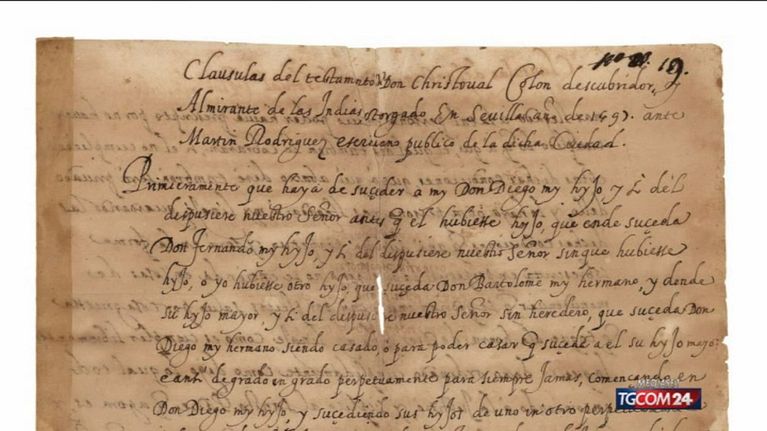 Nº 88. 19.
Clausulas del testamnto Don Christoual Colon descubridor, y
Almirante de las Indias otorgado En Seuilla añ. de 1497. ante
Martin Rodriguez escriuano publico de la dicha Ciudad.
Primieramente que haya de suçeder a my Don Diego my hyjo y si del
dispusiere nuestro Señor antes q el hubiesse hyjo, que ende suçeda
Don Fernando my hyjo, y si del dispusiere nuestro Señor sin que hubiesse
hyjo, o yo hubiesse otro hyjo, que suçeda Don Bartolome my hermano, y dende
su hyjo mayor, y si del dispusiere nuestro Señor sin heredero, que suçeda Don
Diego my hermano siendo casado, o para poder casar q suçeda a el su hyjo mayor
e ansi de grado en grado perpetuamente para siempre jamas, començando en
Don Diego my hyjo, y suçediendo sus hyjos de uno in otro
MEDIASET
TGCOM24